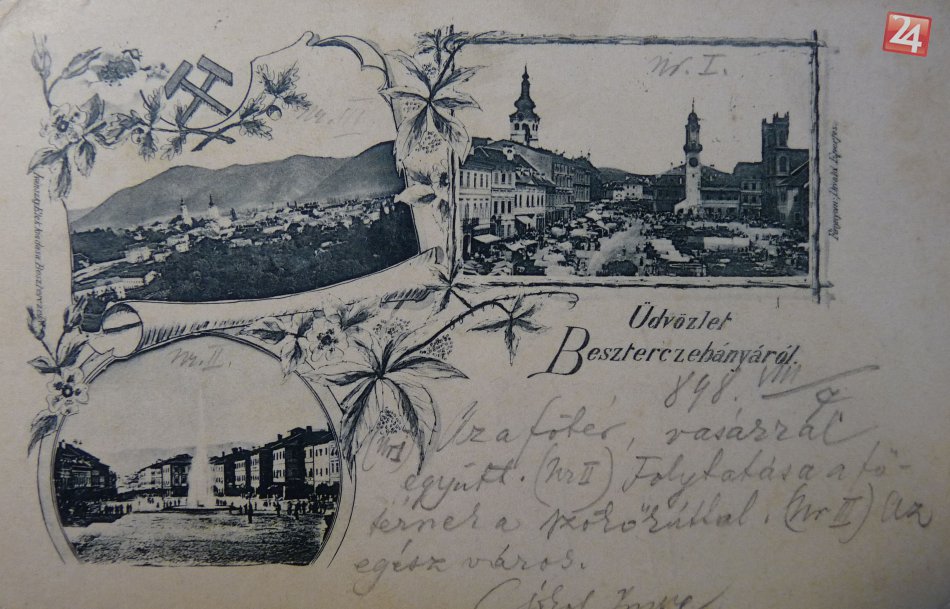 24
Nr. III
Nr. I.
Üdvözlet
Beszterczebányáról.
Nr. II.
898. VIII/9
(Nr I) Ez a főtér, vasárral
együtt. (Nr II) Folytatása a fő-
térnek a szökőkúttal. (Nr III) Az
egész város.
Imre